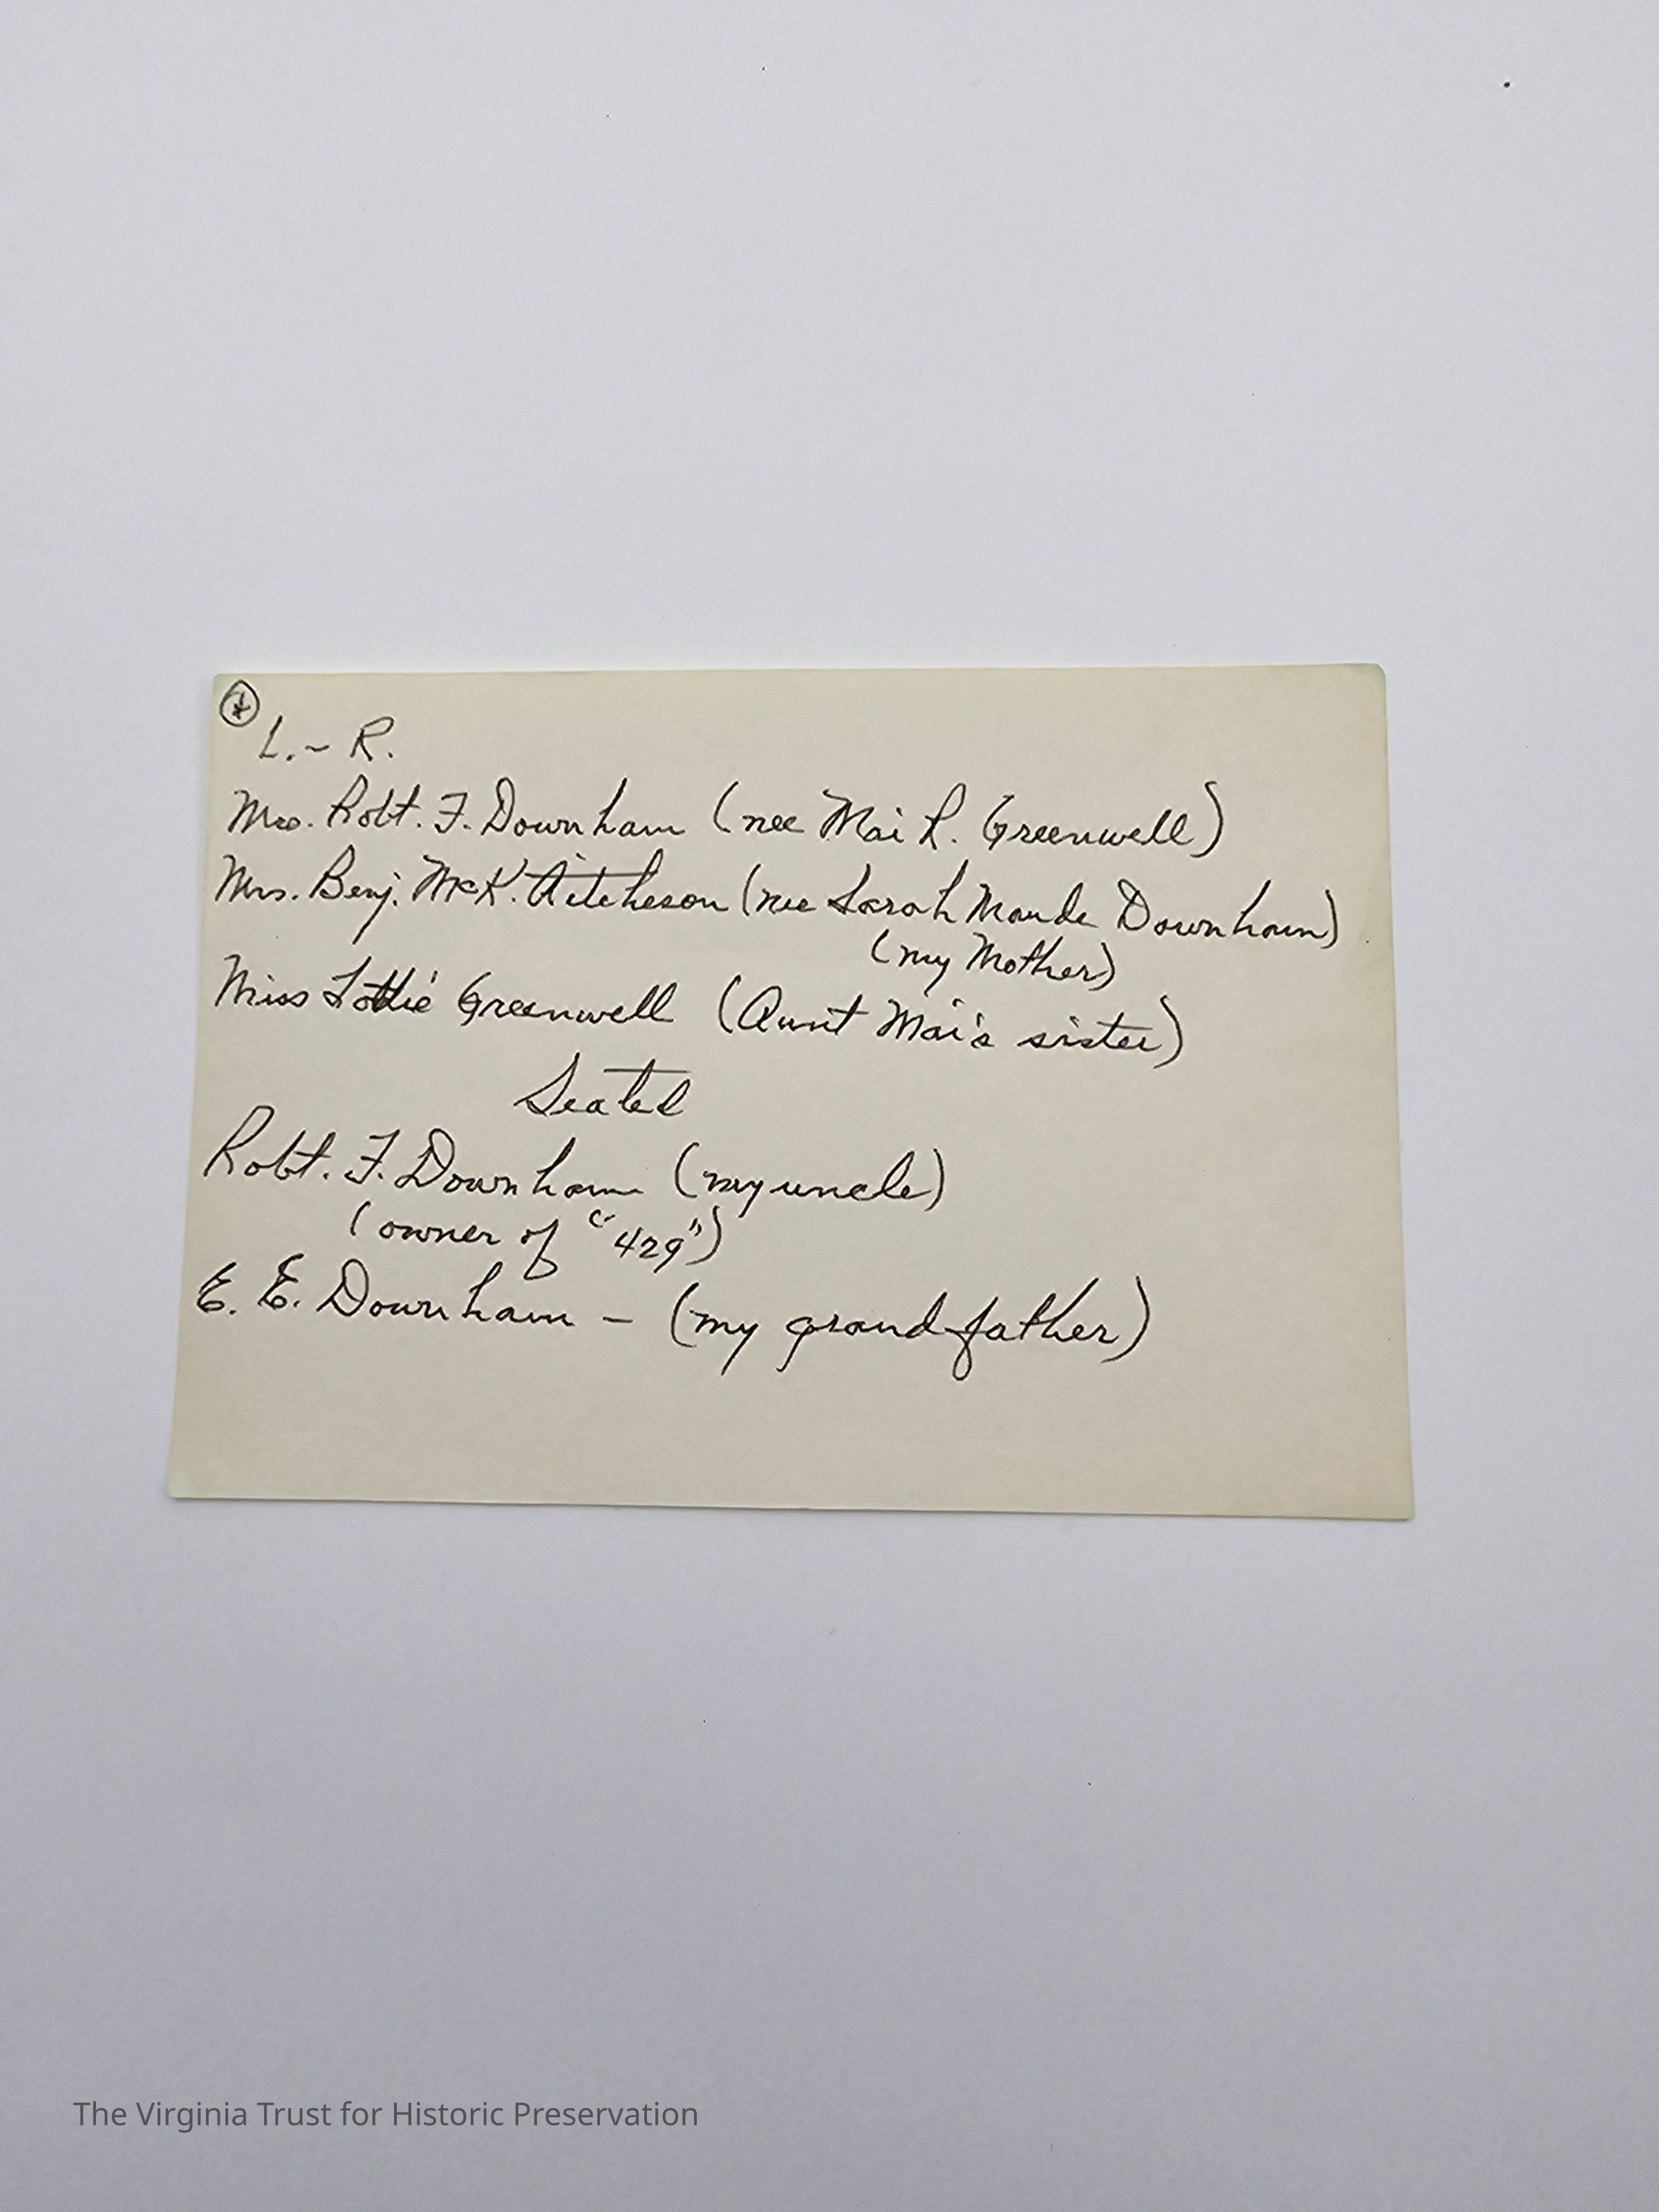 L. - R.
Mrs. Robt. F. Downham (nee Mai R. Greenwell)
Mrs. Benj. McK. Aitcheson (nee Sarah Maude Downham)
(my Mother)
Miss Lottie Greenwell (Aunt Mai's sister)
Seated
Robt. F. Downham (my uncle)
(owner of "429")
E. E. Downham - (my grandfather)
The Virginia Trust for Historic Preservation